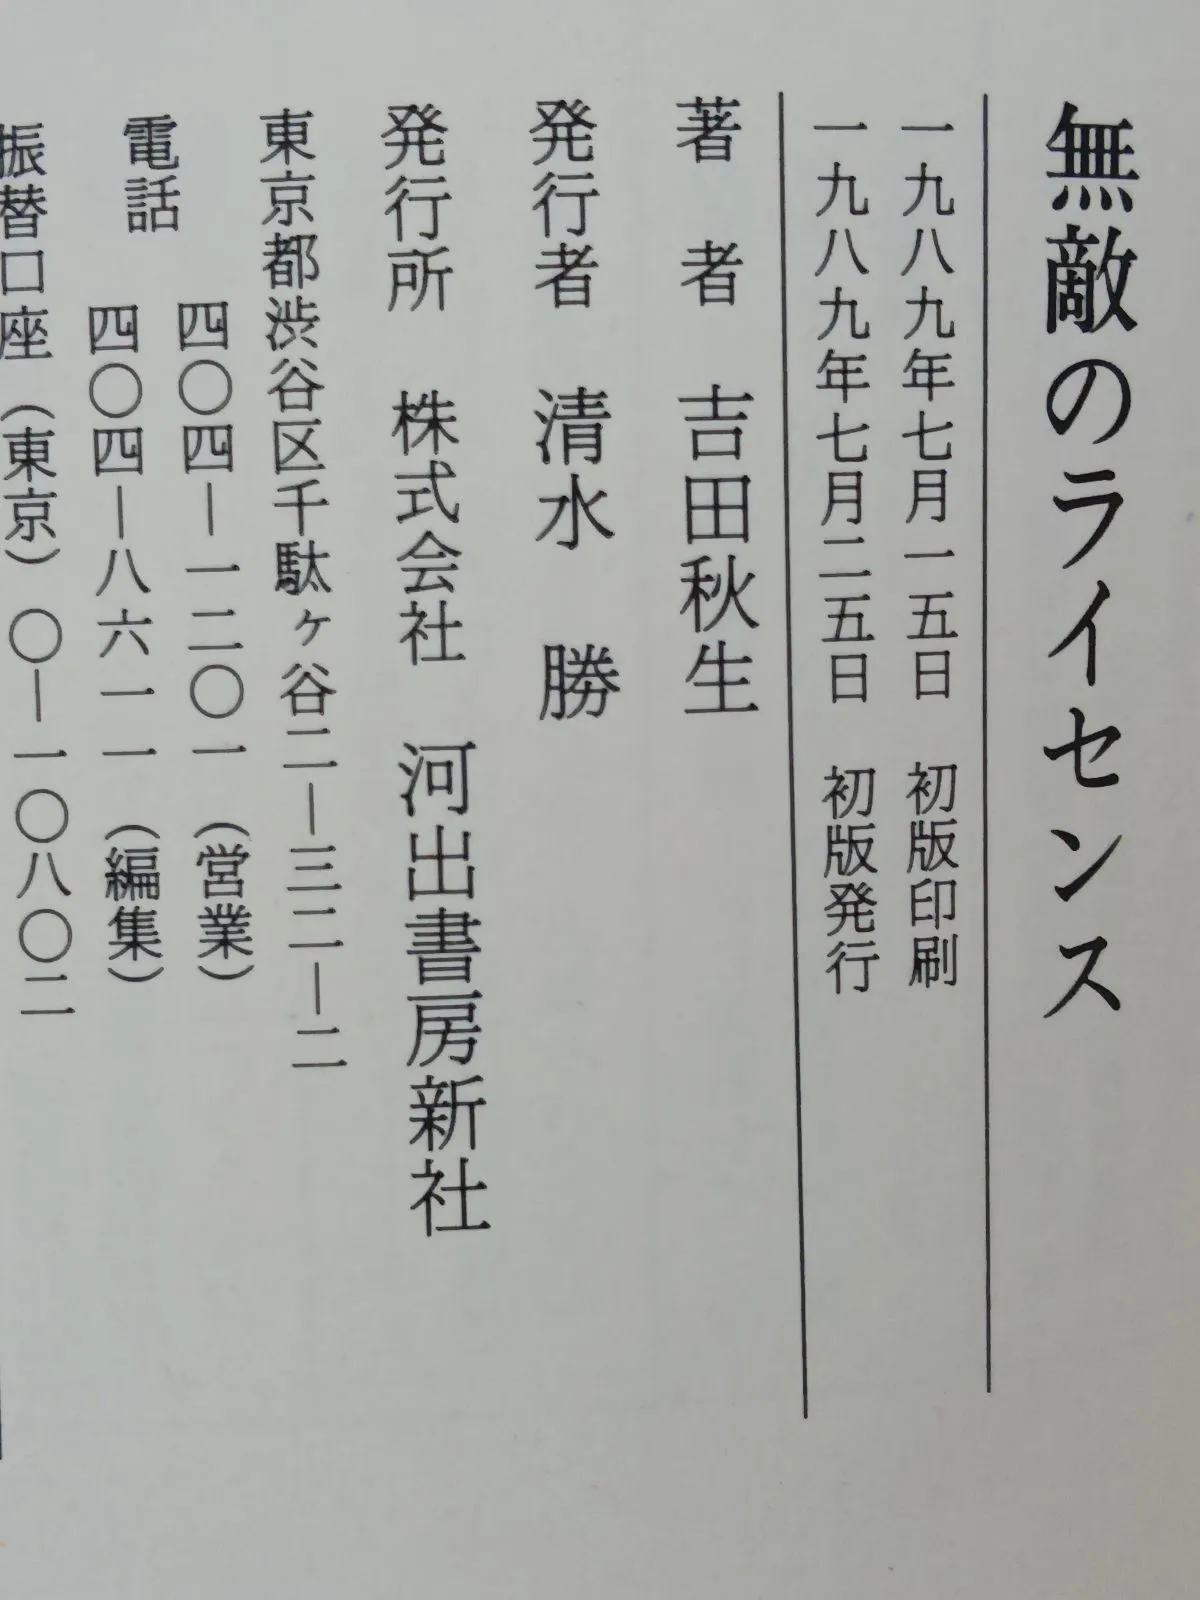 無敵のライセンス
一九八九年七月一五日 初版印刷
一九八九年七月二五日 初版発行
著者 吉田秋生
発行者 清水 勝
発行所 株式会社 河出書房新社
東京都渋谷区千駄ヶ谷二―三二―二
電話 四〇四―一二〇一(営業)
四〇四―八六一一(編集)
振替口座(東京)〇―一〇八〇二